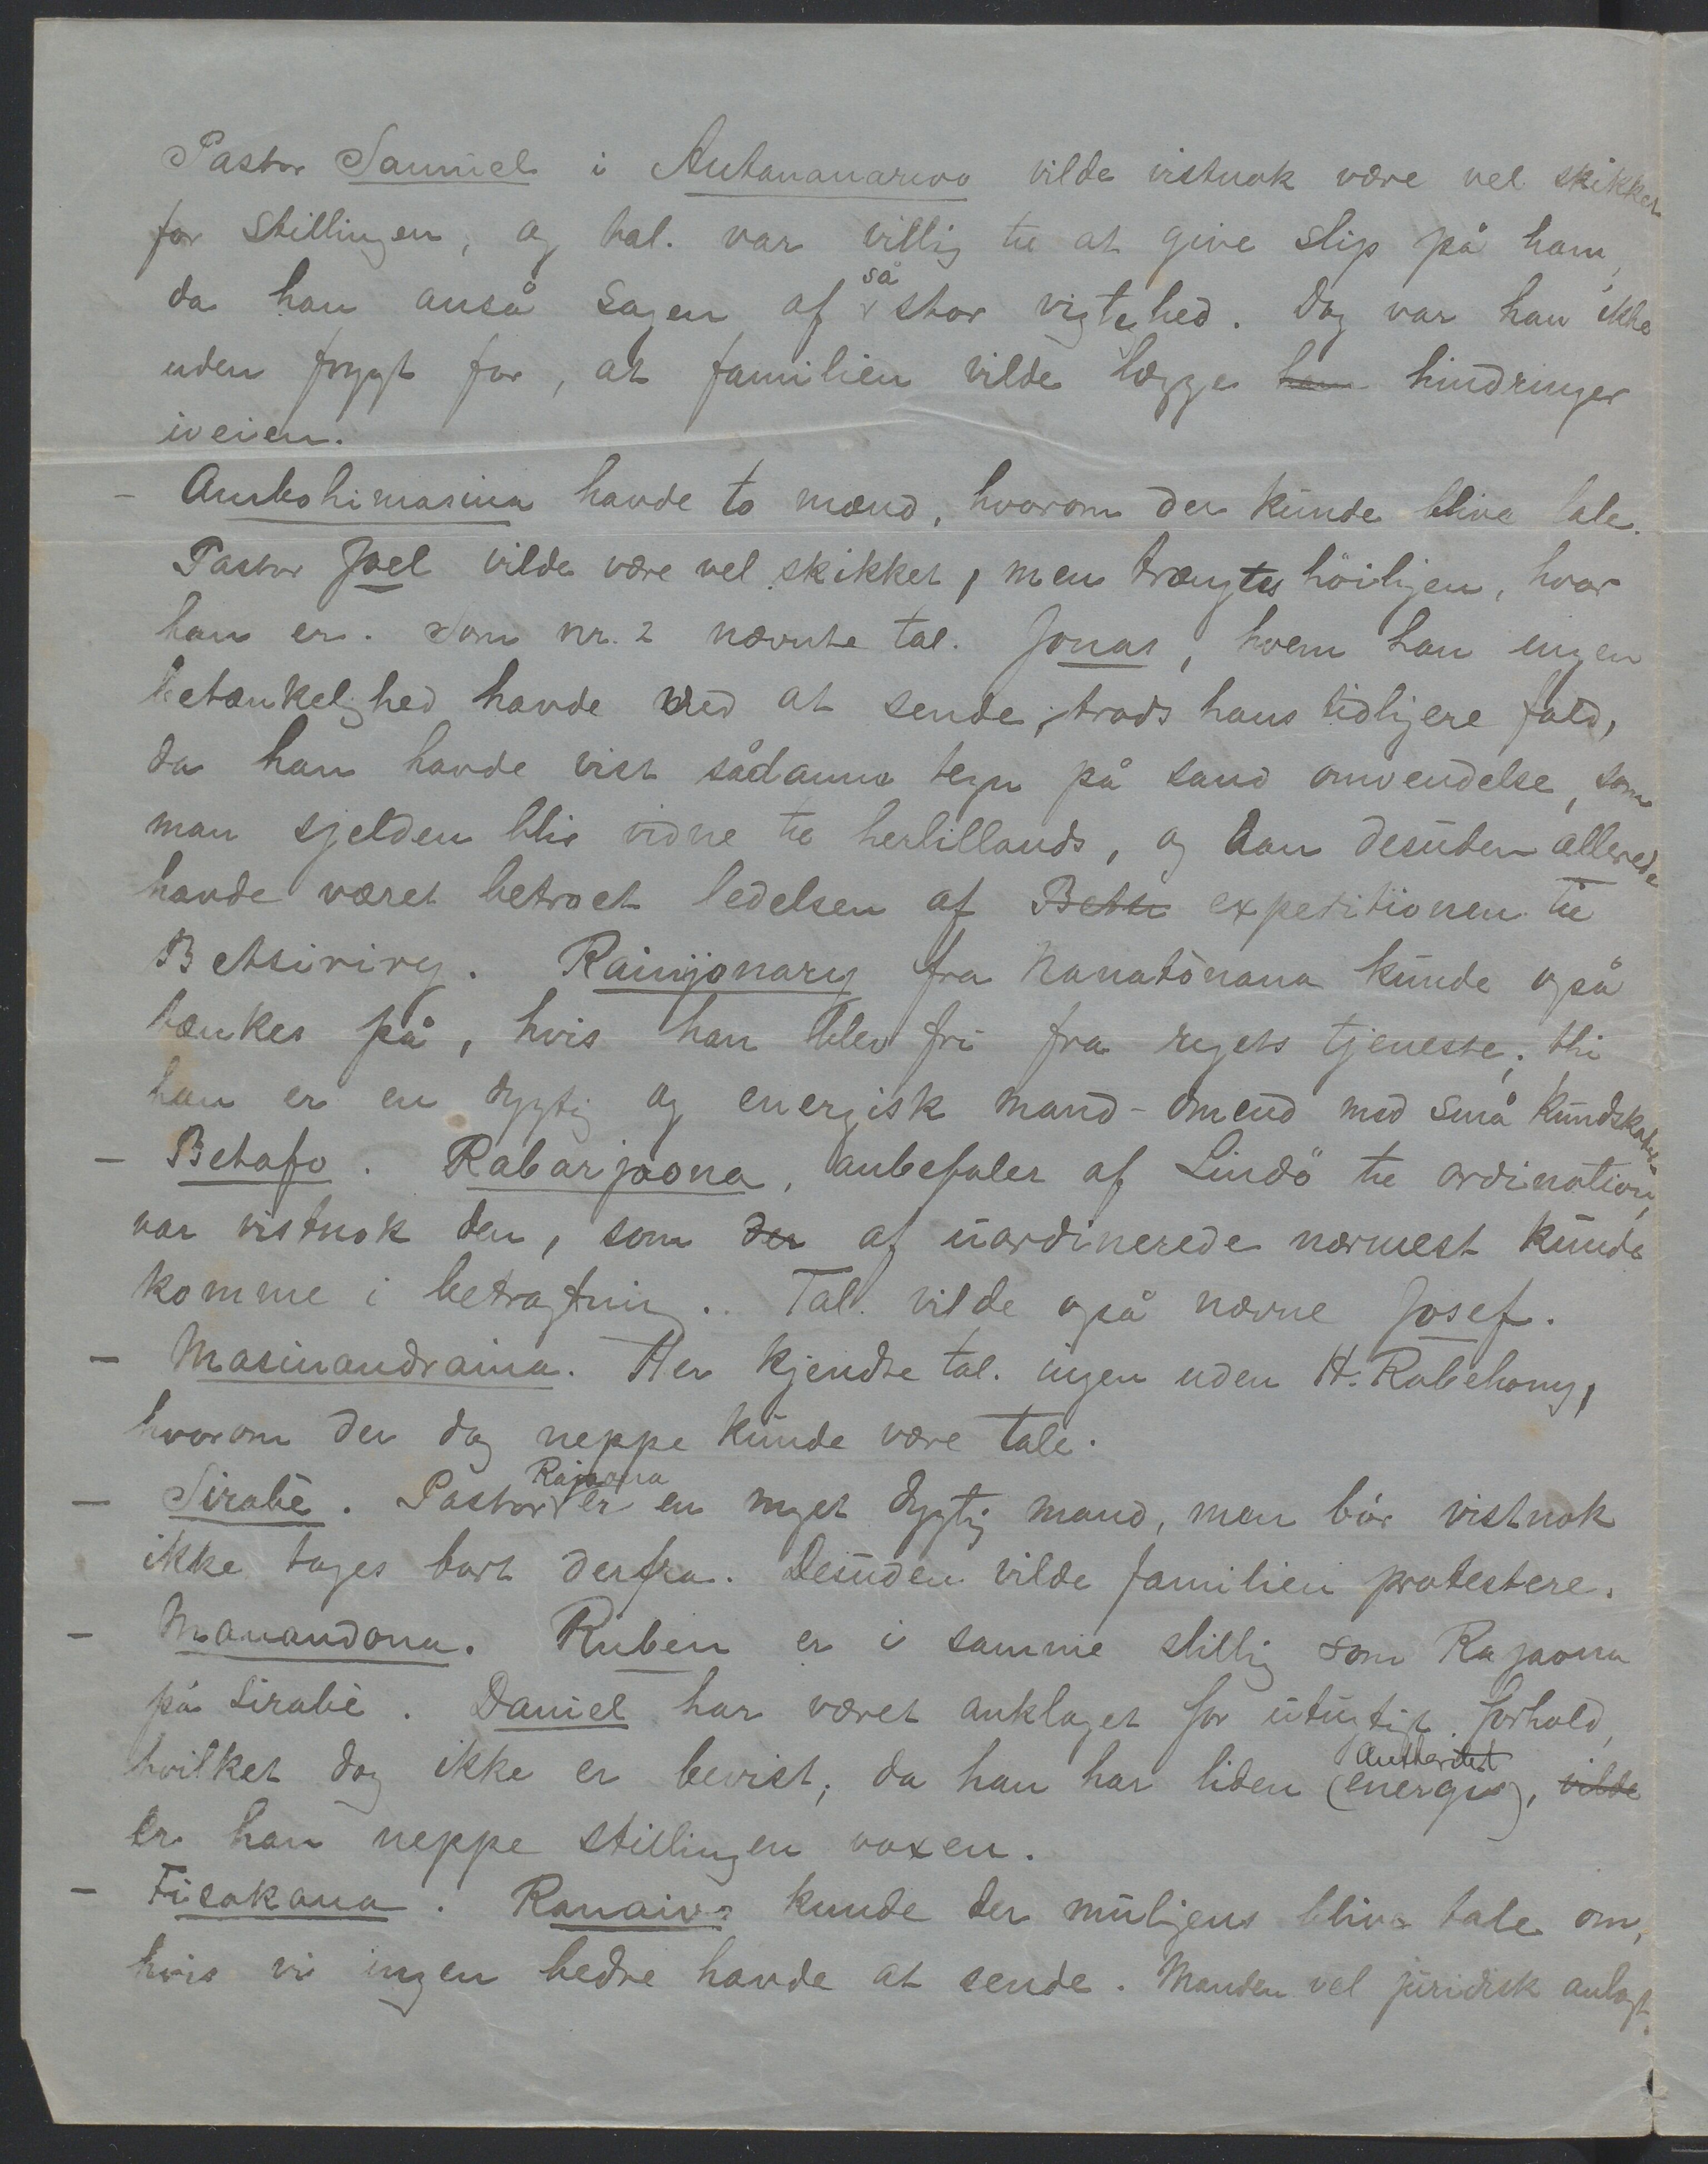 Pastor Samuel i Antananarivo vilde vistnok være vel skikket
for stillingen, og tal. var villig til at give slip på ham,
da han anså sagen af så stor vigtighed. Dog var han ikke
uden frygt for, at familien vilde lægge ham hindringer
iveien.
- Ambohimasina havde to mænd, hvorom der kunde blive tale.
Pastor Joel vilde være vel skikket, men trængtes höiligen, hvor
han er. Som nr. 2 nævnte tal. Jonas, hvem han ingen
betænkelighed havde ved at sende, trods hans tidligere fald,
da han havde vist sådanne tegn på sand omvendelse, som
man sjelden blir vidne til hertillands, og han desuden allerede
havde været betroet ledelsen af Betsi expeditionen til
Betsiriry. Rainijonary fra Nanatònana kunde også
tænkes på, hvis han blev fri fra rigets tjeneste; thi
han er en dygtig og energisk mand - omend med små kundskaber
- Betafo. Rabarijaona, anbefalet af Lindö til ordination,
var vistnok den, som der af uordinerede nærmest kunde
komme i betragtning. Tal. vilde også nævne Josef.
- Masinandraina. Her kjendte tal. ingen uden H. Rabehany,
hvorom der dog neppe kunde være tale.
- Sirabè. Pastor Rajaona er en meget dygtig mand, men bör vistnok
ikke tages bort derfra. Desuden vilde familien protestere.
- Manandona. Ruben er i samme stillig som Rajaona
på Sirabè. Daniel har været anklaget for utugtigt forhold,
hvilket dog ikke er bevist; da han har liden (energi) Autoritet, vilde
er han neppe stillingen voxen.
- Fisakana. Ranaivo kunde der muligens blive tale om,
hvis vi ingen bedre havde at sende. Manden vel juridisk anlagt.